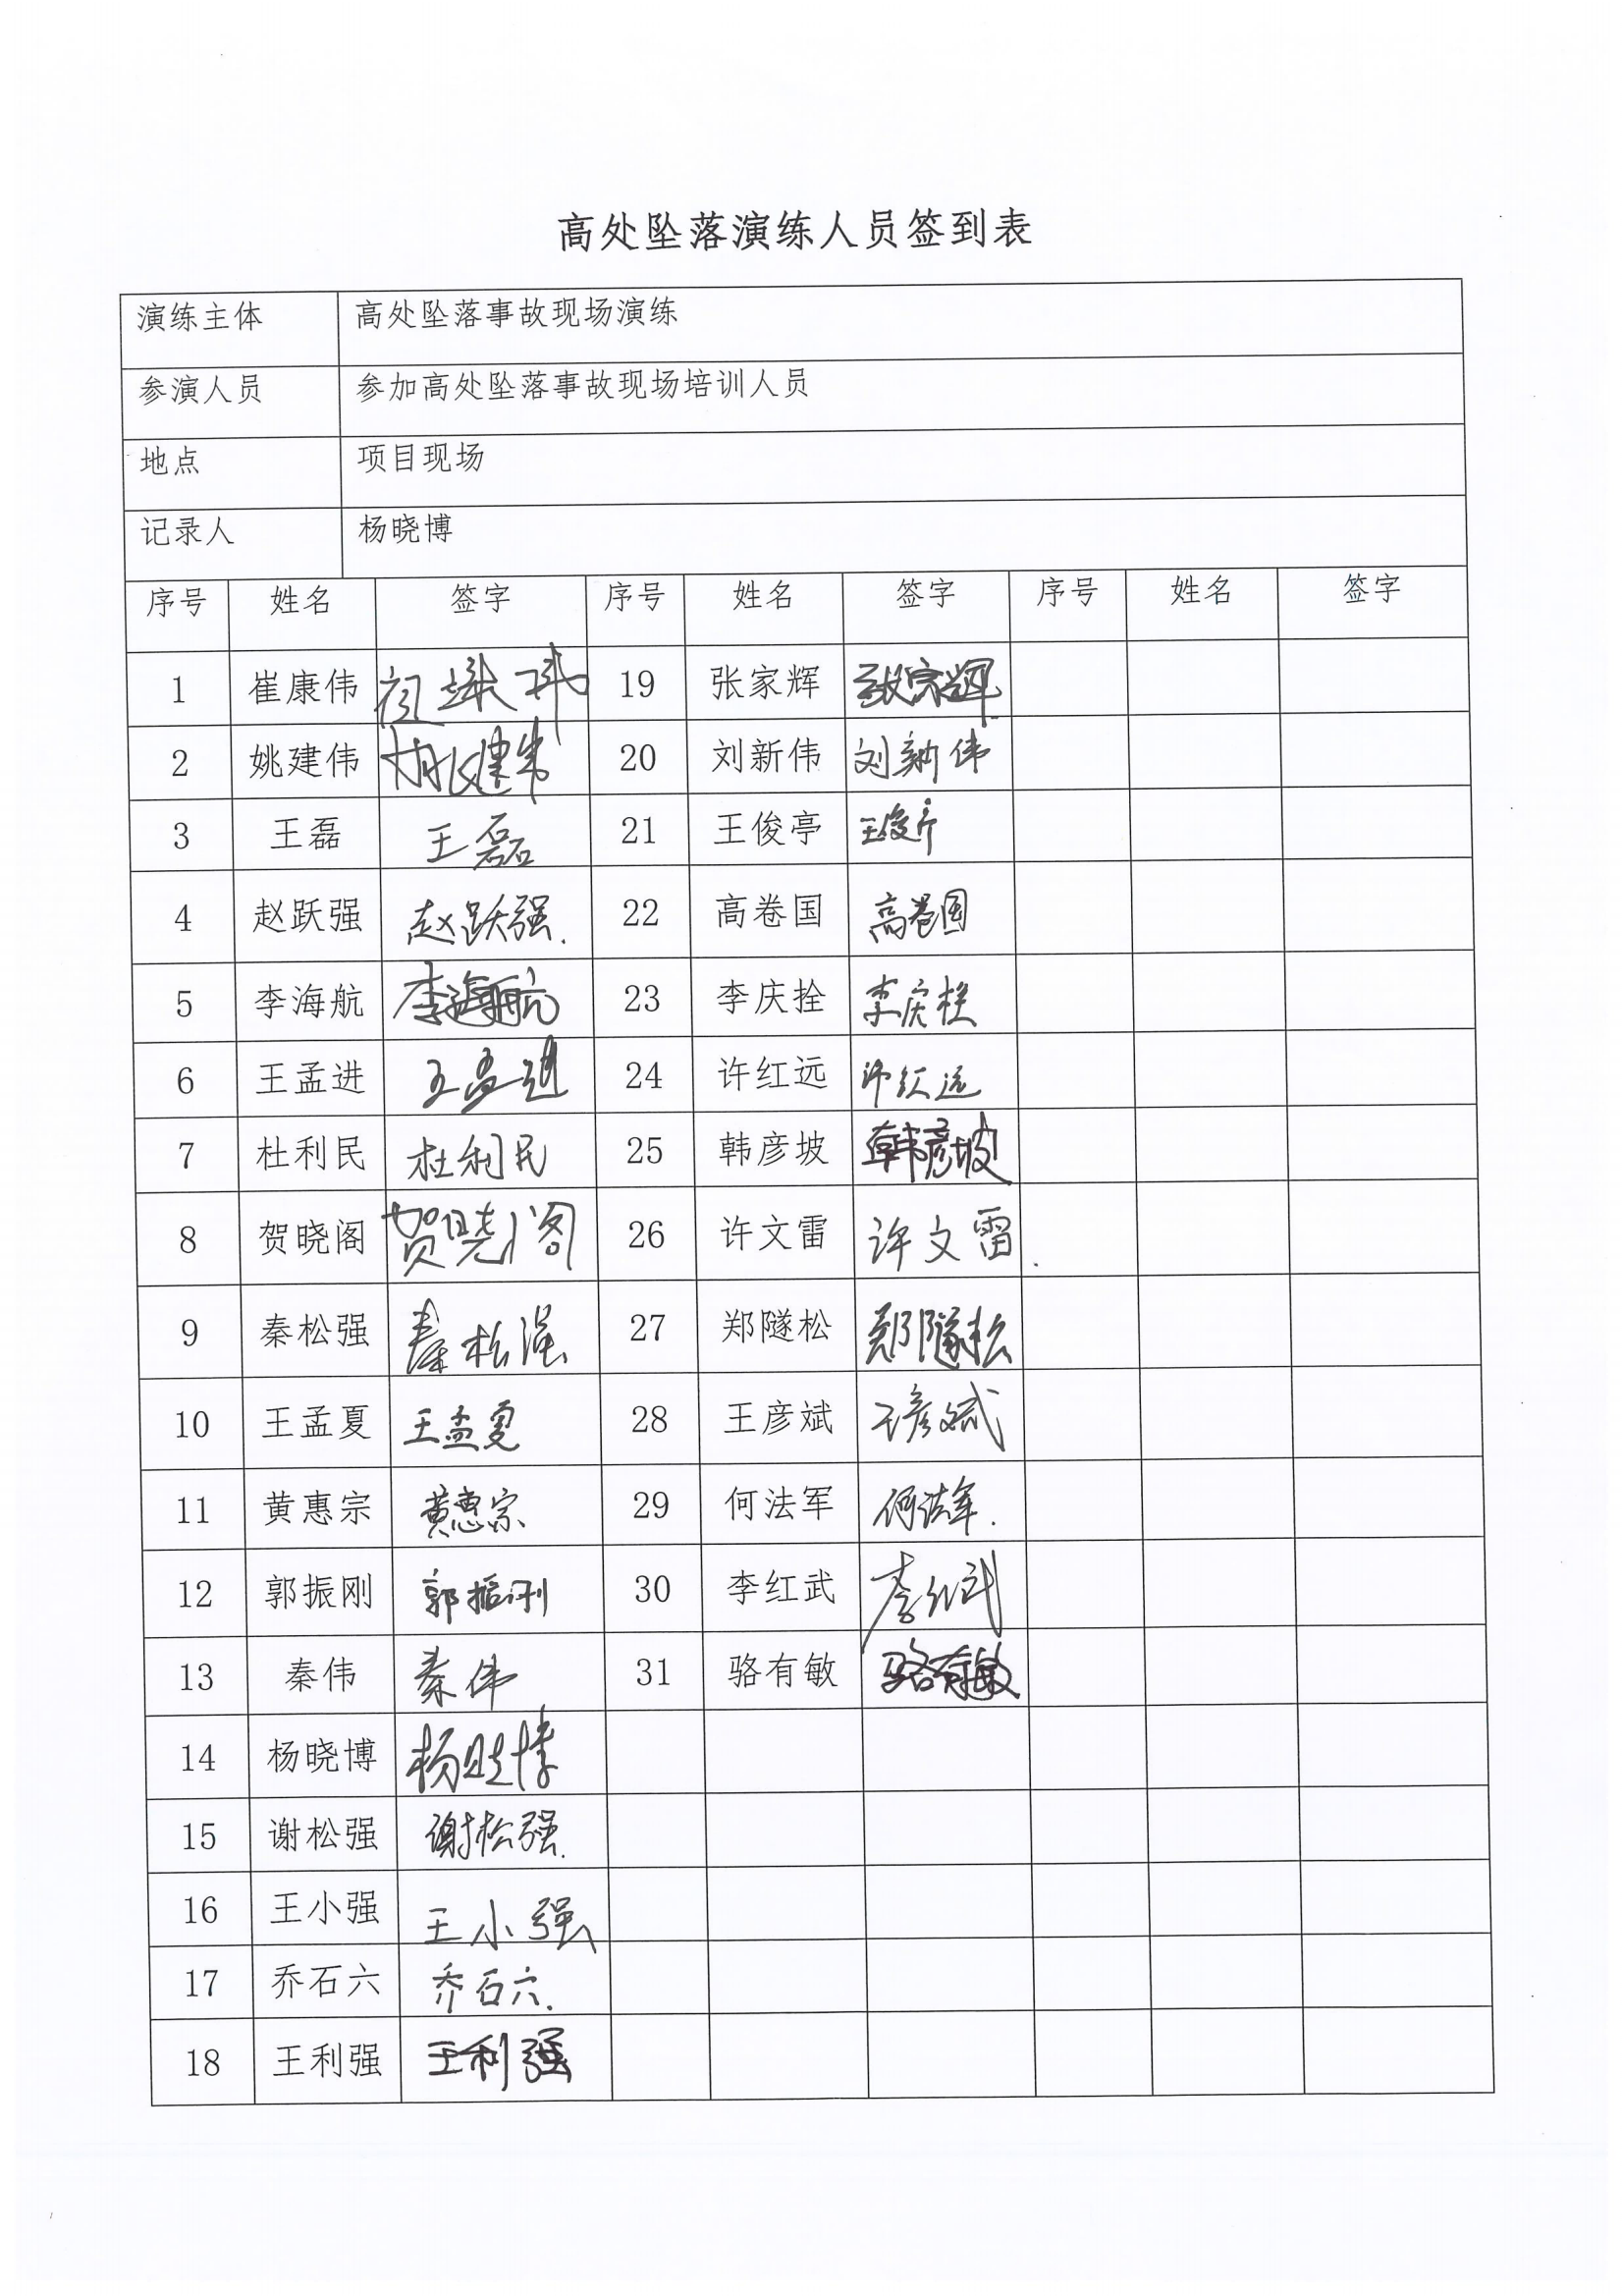 高处坠落演练人员签到表
演练主体 高处坠落事故现场演练
参演人员 参加高处坠落事故现场培训人员
地点 项目现场
记录人 杨晓博
序号 姓名 签字 序号 姓名 签字 序号 姓名 签字
1 崔康伟 19 张家辉 张家辉
2 姚建伟 姚建伟 20 刘新伟 刘新伟
3 王磊 王磊 21 王俊亭 王俊亭
4 赵跃强 赵跃强. 22 高卷国 高卷国
5 李海航 李海航 23 李庆拴 李庆拴
6 王孟进 王孟进 24 许红远 许红远
7 杜利民 杜利民 25 韩彦坡 韩彦坡
8 贺晓阁 贺晓阁 26 许文雷 许文雷.
9 秦松强 秦松强 27 郑隧松 郑隧松
10 王孟夏 王孟夏 28 王彦斌 王彦斌
11 黄惠宗 黄惠宗 29 何法军 何法军.
12 郭振刚 郭振刚 30 李红武 李红武
13 秦伟 秦伟 31 骆有敏 骆有敏
14 杨晓博 杨晓博
15 谢松强 谢松强.
16 王小强 王小强
17 乔石六 乔石六.
18 王利强 王利强